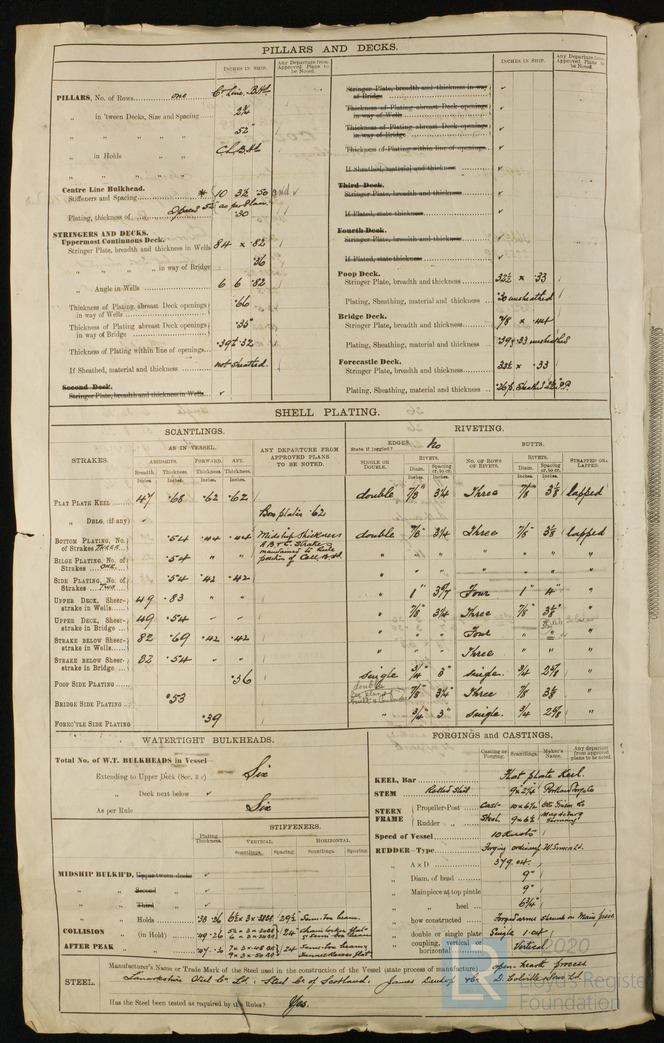 PILLARS AND DECKS.
INCHES IN SHIP.
Any Departure from Approved Plans to be Noted.
PILLARS, No. of Rows one Cr Line. B.Hd.
" in 'tween Decks, Size and Spacing 2¾
" " " " 52"
" in Holds " " CL.B.Hd
Centre Line Bulkhead.
Stiffeners and Spacing 10 3½ .50 and
Plating, thickness of Spaced 52" as per Plan .30
STRINGERS AND DECKS.
Uppermost Continuous Deck.
Stringer Plate, breadth and thickness in Wells 84 × .82
" " " " in way of Bridge .36
" Angle in Wells 6 6 .82
Thickness of Plating abreast Deck openings in way of Wells .66
Thickness of Plating abreast Deck openings in way of Bridge .35
Thickness of Plating within line of openings .39 & .32
If Sheathed, material and thickness not sheathed
Second Deck.
Stringer Plate, breadth and thickness in Wells
INCHES IN SHIP.
Any Departure from Approved Plans to be Noted.
Stringer Plate, breadth and thickness in way of Bridge
Thickness of Plating abreast Deck openings in way of Wells
Thickness of Plating abreast Deck openings in way of Bridge
Thickness of Plating within line of openings
If Sheathed, material and thickness
Third Deck.
Stringer Plate, breadth and thickness
If Plated, state thickness
Fourth Deck.
Stringer Plate, breadth and thickness
If Plated, state thickness
Poop Deck.
Stringer Plate, breadth and thickness 32½ × .33
Plating, Sheathing, material and thickness .30 unsheathed
Bridge Deck.
Stringer Plate, breadth and thickness 78 × .44
Plating, Sheathing, material and thickness .39 & .33 unsheathed
Forecastle Deck.
Stringer Plate, breadth and thickness 33½ × .33
Plating, Sheathing, material and thickness .26 p. Sheathed 2½" P.P.
SHELL PLATING.
SCANTLINGS.
RIVETING.
STRAKES.
AS IN VESSEL.
AMIDSHIPS. FORWARD. AFT.
Breadth. Thickness. Thickness. Thickness.
Inches. Inches. Inches. Inches.
ANY DEPARTURE FROM APPROVED PLANS TO BE NOTED.
EDGES. No
State if joggled?
BUTTS.
SINGLE OR DOUBLE.
RIVETS. Diam. Spacing cr. to cr. Inches. Inches.
NO. OF ROWS OF RIVETS.
RIVETS. Diam. Spacing cr. to cr. Inches. Inches.
STRAPPED OR LAPPED.
FLAT PLATE KEEL 47 .68 .62 .62 double 7/8" 3¼ Three 7/8" 3⅛ lapped
" DBLG. (if any) Box plates .62
BOTTOM PLATING, No. of Strakes Three .54 .44 .44 Midship thickness double 7/8 3¼ Three 7/8 3⅛ lapped
BILGE PLATING, No. of Strakes One .54 " " " " " " " " "
SIDE PLATING, No. of Strakes Two .54 .42 .42
UPPER DECK, Sheer-strake in Wells 49 .83 " " " 1" Four 1" 4" "
UPPER DECK, Sheer-strake in Bridge 49 .54 " " " 7/8 3¼ Three 7/8 3⅛ "
STRAKE BELOW SHEER-strake in Wells 82 .69 .42 .42 " " " Four " "
STRAKE BELOW SHEER-strake in Bridge 82 .54 " " " " " Three " " "
POOP SIDE PLATING .36 single ¾" 3" single. ¾ 2⅝ "
BRIDGE SIDE PLATING .53 double 7/8 3¼" Three 7/8 3⅛ "
FORE'CTLE SIDE PLATING .39 " ¾" 3" single. ¾ 2⅝ "
WATERTIGHT BULKHEADS.
Total No. of W.T. BULKHEADS in Vessel
Extending to Upper Deck (Sec. 2 c) Six
" Deck next below
As per Rule Six
STIFFENERS.
Plating Thickness.
VERTICAL. HORIZONTAL.
Scantlings. Spacing. Scantlings. Spacing.
MIDSHIP BULKH'D, Upper tween decks
" Second "
" Third "
" Holds .33 .36 29½
COLLISION " (in Hold) .49 .26 24"
AFTER PEAK " " 24"
FORGINGS and CASTINGS.
Casting or Forging. Scantlings. Maker's Name. Any departure from approved plans to be noted.
KEEL, Bar Flat plate Keel.
STEM Rolled Steel 9 × 2¼
STERN FRAME
Propeller Post Cast 10 × 6½
Rudder " Steel 9 × 6½ Magdeburg Germany
Speed of Vessel 10 Knots
RUDDER—Type Forging ordinary
" A x D 379
" Diam. of head 9"
" Mainpiece at top pintle 9"
" " heel 6¾"
" how constructed Forged arms shrunk on Main piece
" double or single plate Single 1.04
" coupling, vertical or horizontal Vertical
STEEL.
Manufacturer's Name or Trade Mark of the Steel used in the construction of the Vessel (state process of manufacture) open-hearth process
Lanarkshire Steel Co. Ld. Steel Co. of Scotland. James Dunlop & Co. D. Colville & Sons Ld.
Has the Steel been tested as required by the Rules? Yes.
LR
© 2020
Lloyd's Register
Foundation